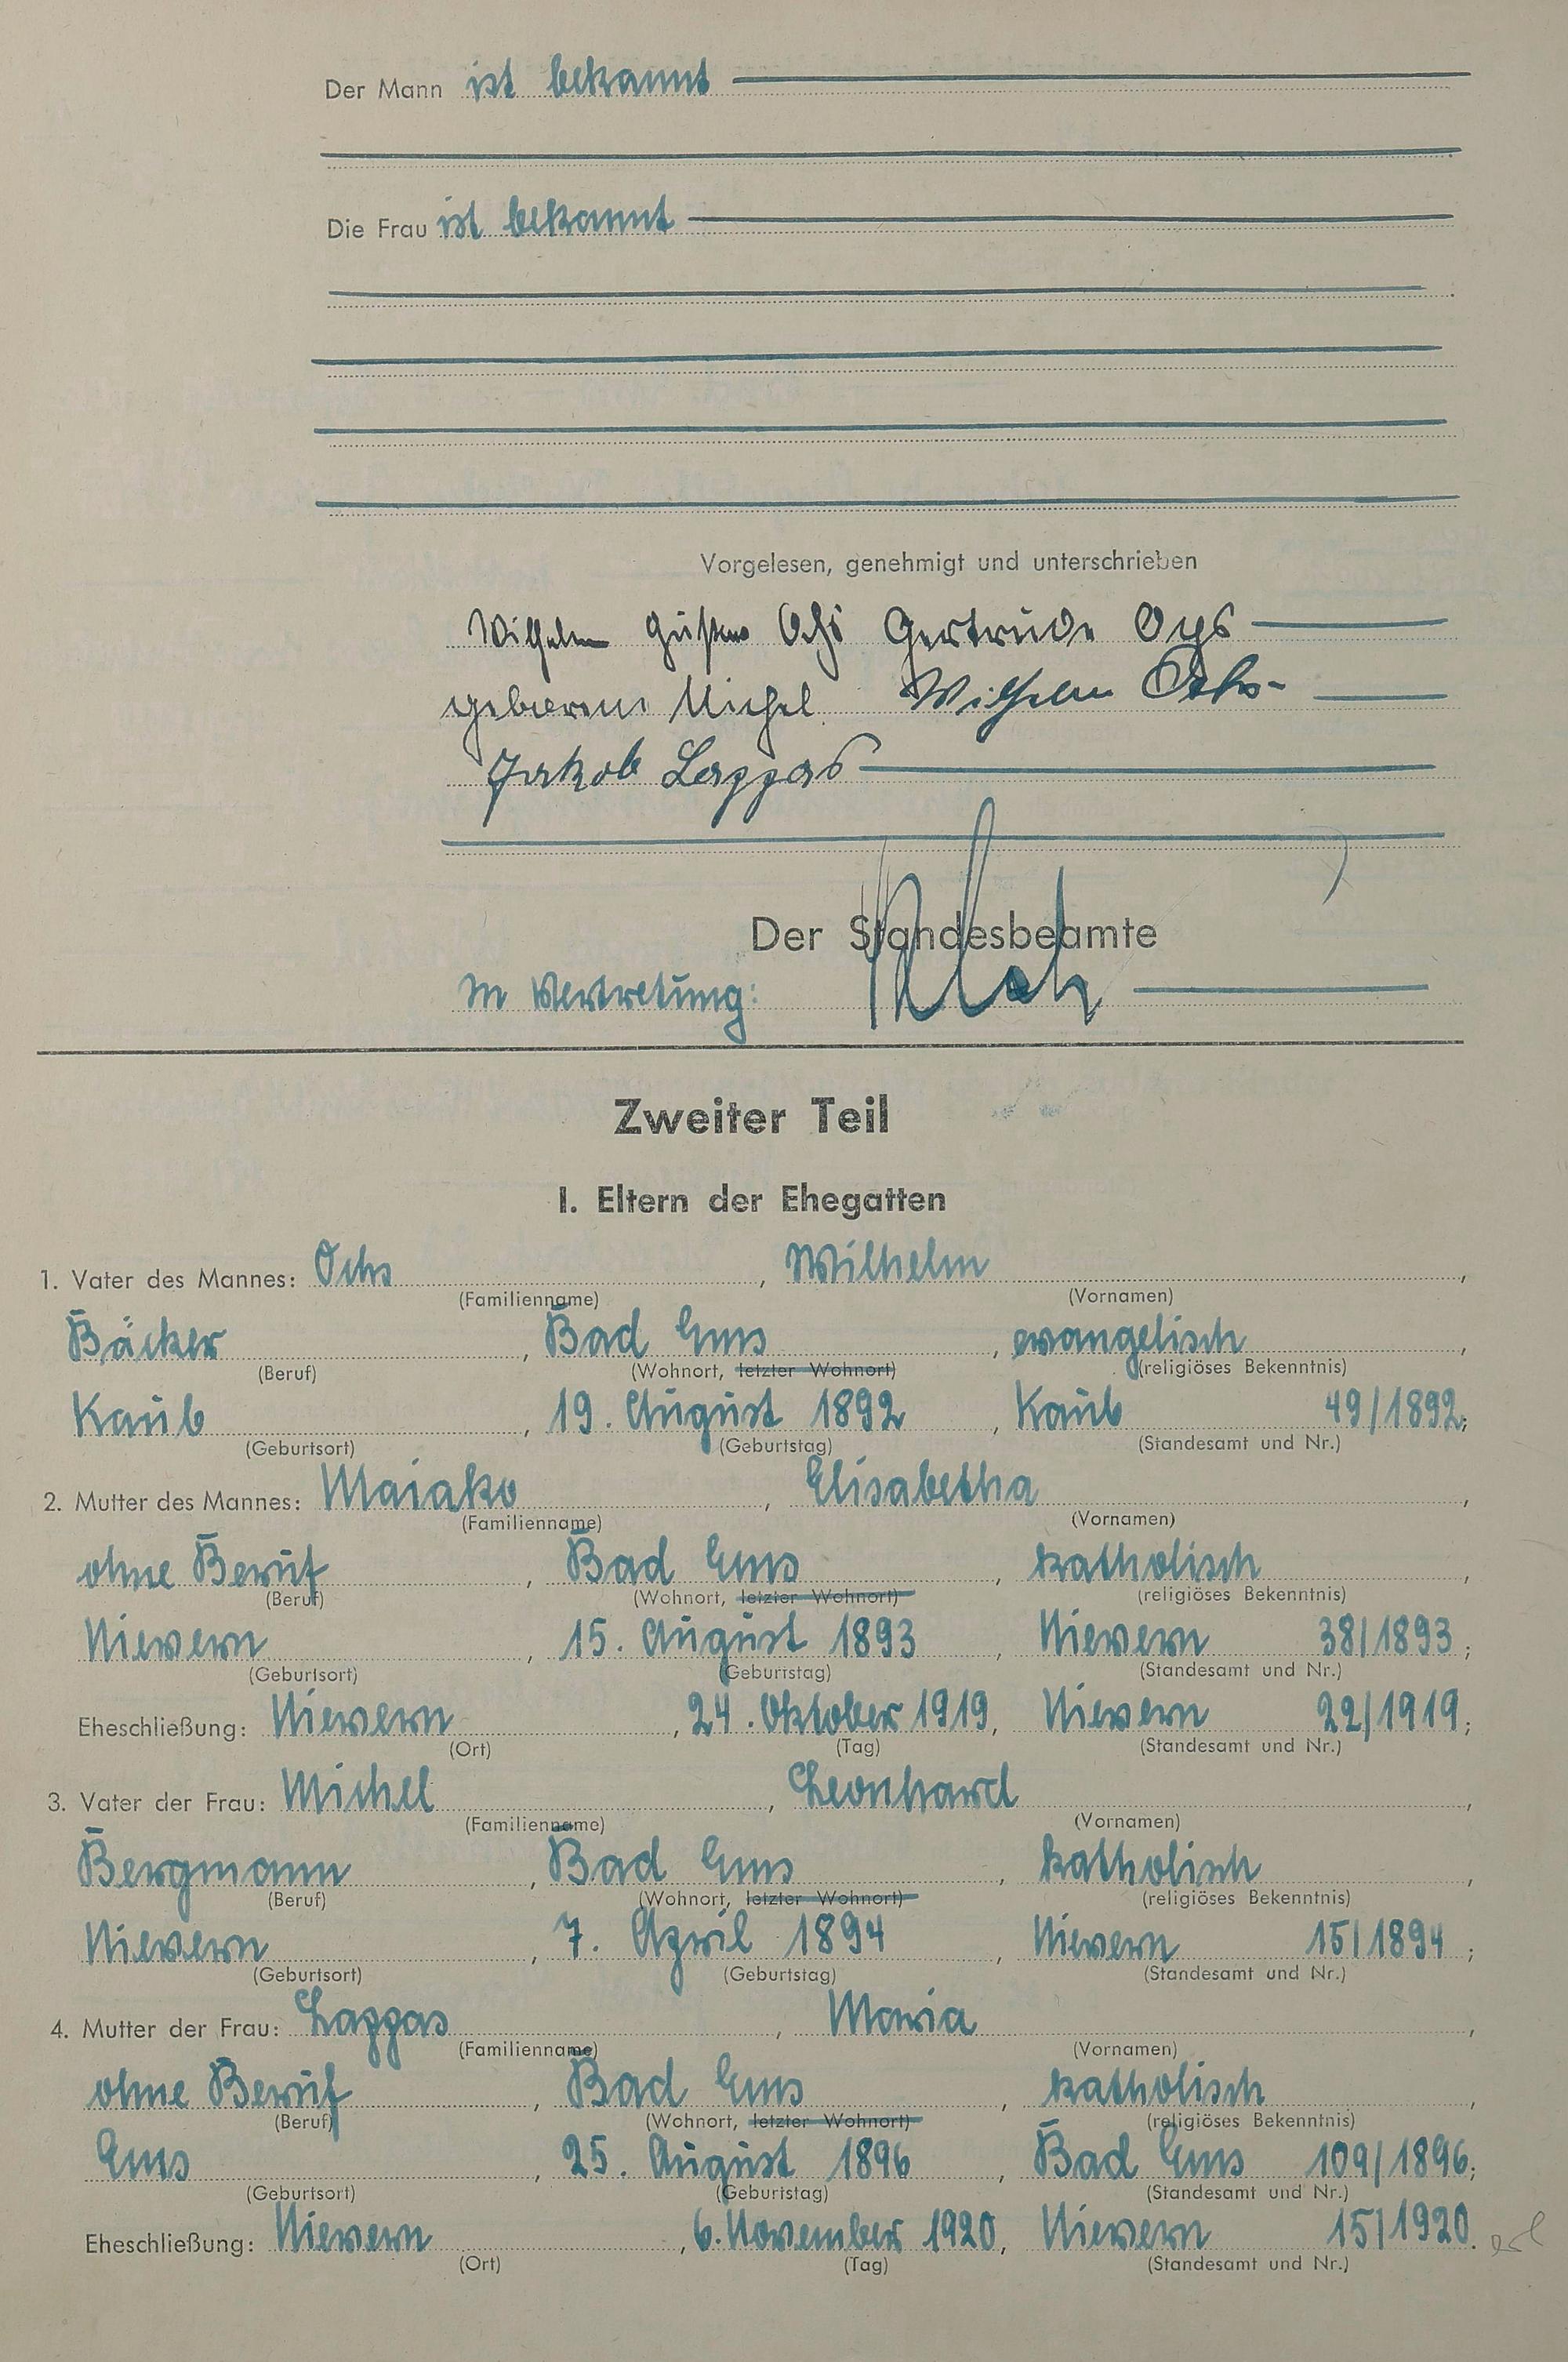 Der Mann ist bekannt
Die Frau ist bekannt
Vorgelesen, genehmigt und unterschrieben
Wilhelm Gustav Ochs Gertrude Ochs
geborene Michel Wilhelm Ochs
Jakob Lappas
Der Standesbeamte
In Vertretung:
Zweiter Teil
I. Eltern der Ehegatten
1. Vater des Mannes: Ochs, Wilhelm,
(Familienname) (Vornamen)
Bäcker, Bad Ems, evangelisch,
(Beruf) (Wohnort, letzter Wohnort) (religiöses Bekenntnis)
Kaub, 19. August 1892, Kaub 49/1892;
(Geburtsort) (Geburtstag) (Standesamt und Nr.)
2. Mutter des Mannes: Maiako, Elisabetha,
(Familienname) (Vornamen)
ohne Beruf, Bad Ems, katholisch,
(Beruf) (Wohnort, letzter Wohnort) (religiöses Bekenntnis)
Nievern, 15. August 1893, Nievern 38/1893;
(Geburtsort) (Geburtstag) (Standesamt und Nr.)
Eheschließung: Nievern, 24. Oktober 1919, Nievern 22/1919;
(Ort) (Tag) (Standesamt und Nr.)
3. Vater der Frau: Michel, Leonhard,
(Familienname) (Vornamen)
Bergmann, Bad Ems, katholisch,
(Beruf) (Wohnort, letzter Wohnort) (religiöses Bekenntnis)
Nievern, 7. April 1894, Nievern 15/1894;
(Geburtsort) (Geburtstag) (Standesamt und Nr.)
4. Mutter der Frau: Lappas, Maria,
(Familienname) (Vornamen)
ohne Beruf, Bad Ems, katholisch,
(Beruf) (Wohnort, letzter Wohnort) (religiöses Bekenntnis)
Ems, 25. August 1896, Bad Ems 109/1896;
(Geburtsort) (Geburtstag) (Standesamt und Nr.)
Eheschließung: Nievern, 6. November 1920, Nievern 15/1920.
(Ort) (Tag) (Standesamt und Nr.)